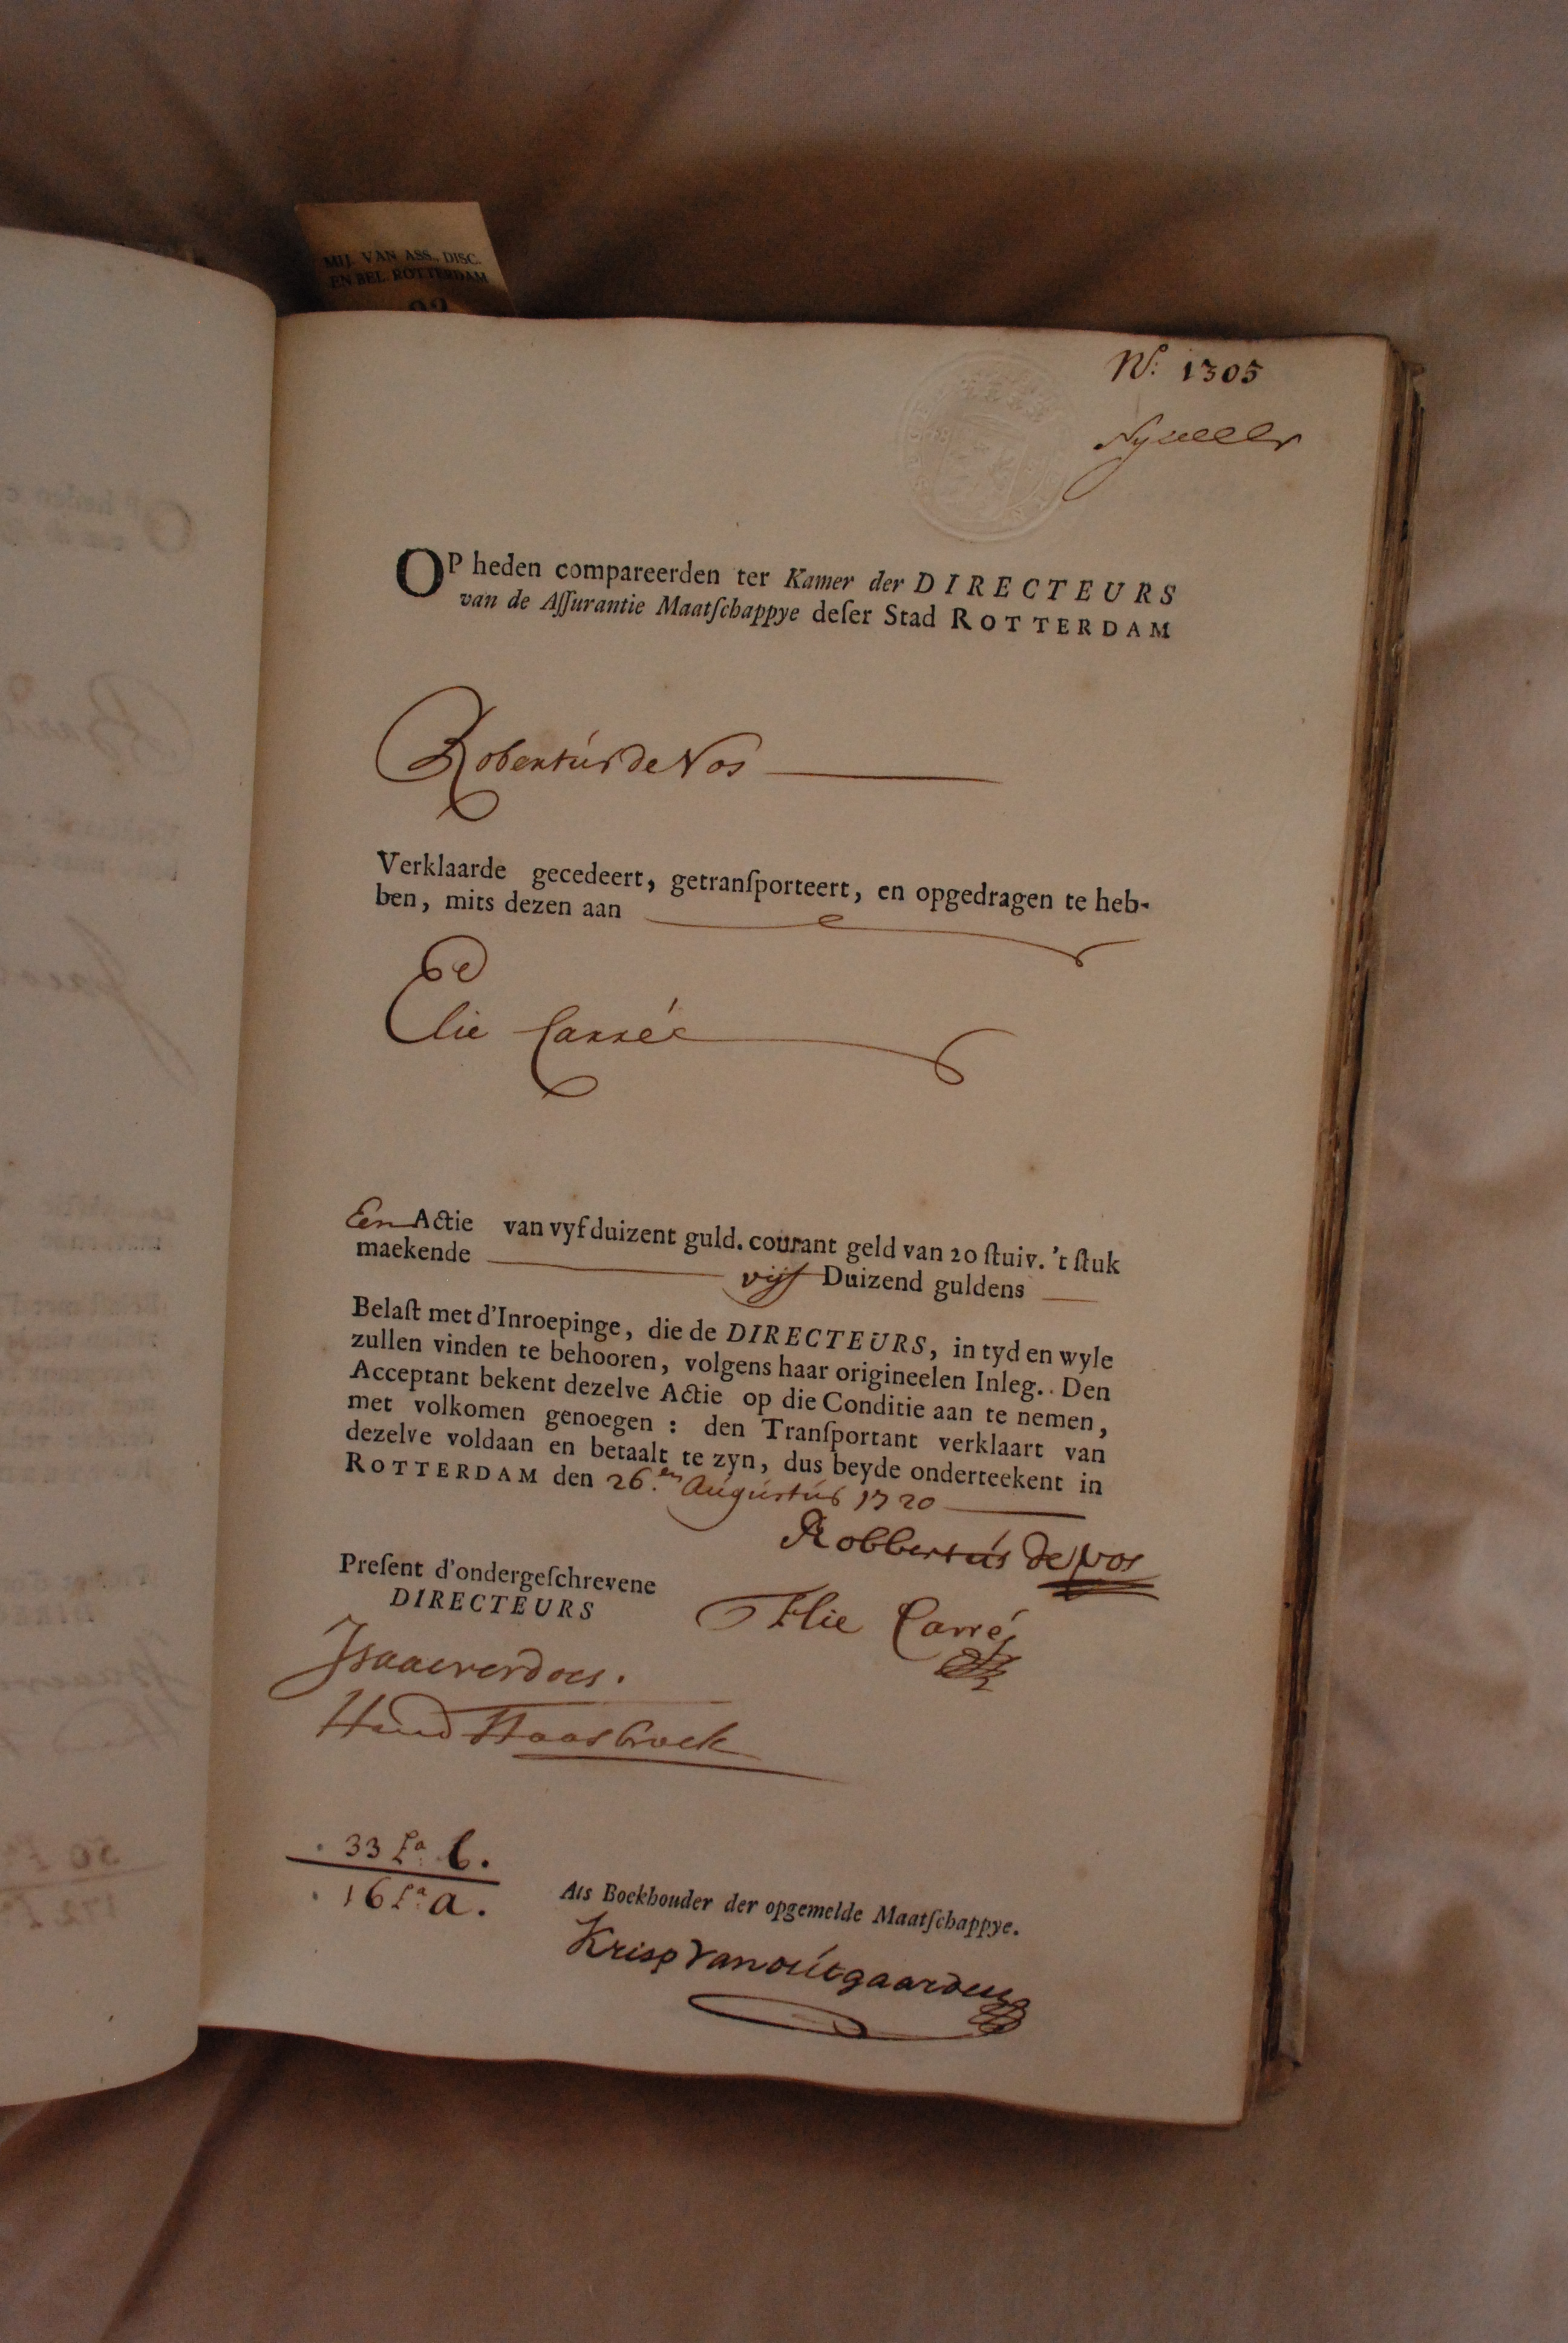 MIJ. VAN ASS., DISC.
EN BEL. ROTTERDAM
N.o 1305
OP heden compareerden ter Kamer der DIRECTEURS
van de Aſſurantie Maatſchappye deſer Stad ROTTERDAM
Robertús de Vos
Verklaarde gecedeert, getranſporteert, en opgedragen te heb-
ben, mits dezen aan
Elie Carréé
Een Actie van vyf duizent guld. courant geld van 20 ſtuiv. 't ſtuk
maekende vijf Duizend guldens
Belaſt met d'Inroepinge, die de DIRECTEURS, in tyd en wyle
zullen vinden te behooren, volgens haar origineelen Inleg. . Den
Acceptant bekent dezelve Actie op die Conditie aan te nemen,
met volkomen genoegen : den Tranſportant verklaart van
dezelve voldaan en betaalt te zyn, dus beyde onderteekent in
ROTTERDAM den 26.en Augústús 1720
Robbertús de vos
Preſent d'ondergeſchrevene
DIRECTEURS
Elie Carré
Isaacverdoes.
Haasbroek
33 Lª b.
16 Lª a.
Als Boekhouder der opgemelde Maatſchappye.
Krisp van oútgaarden